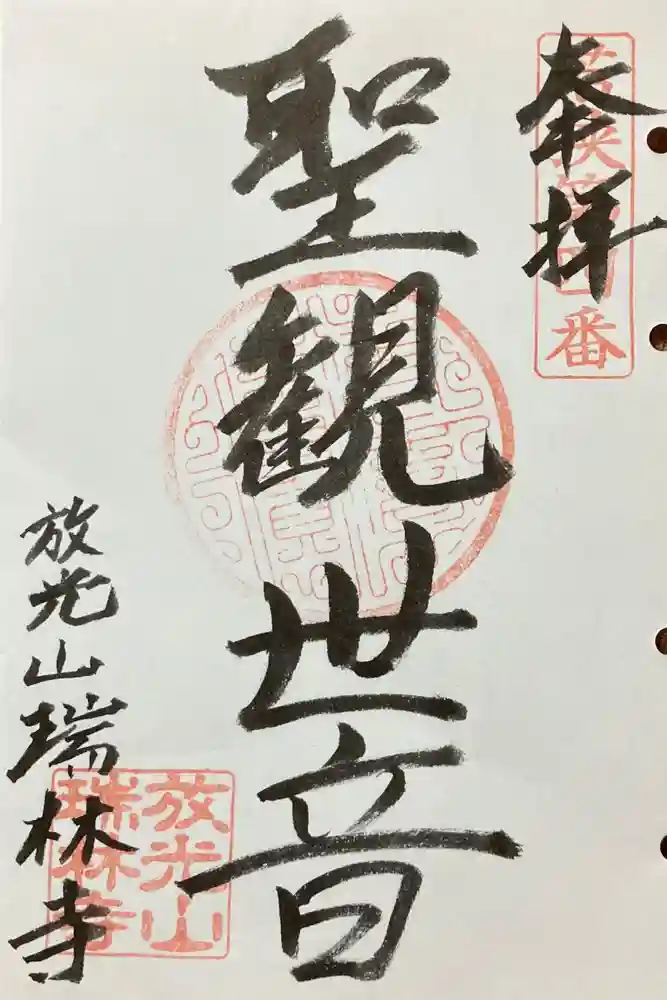 奉拝
第四番
聖観世音
放光山瑞林寺
放光山
瑞林寺